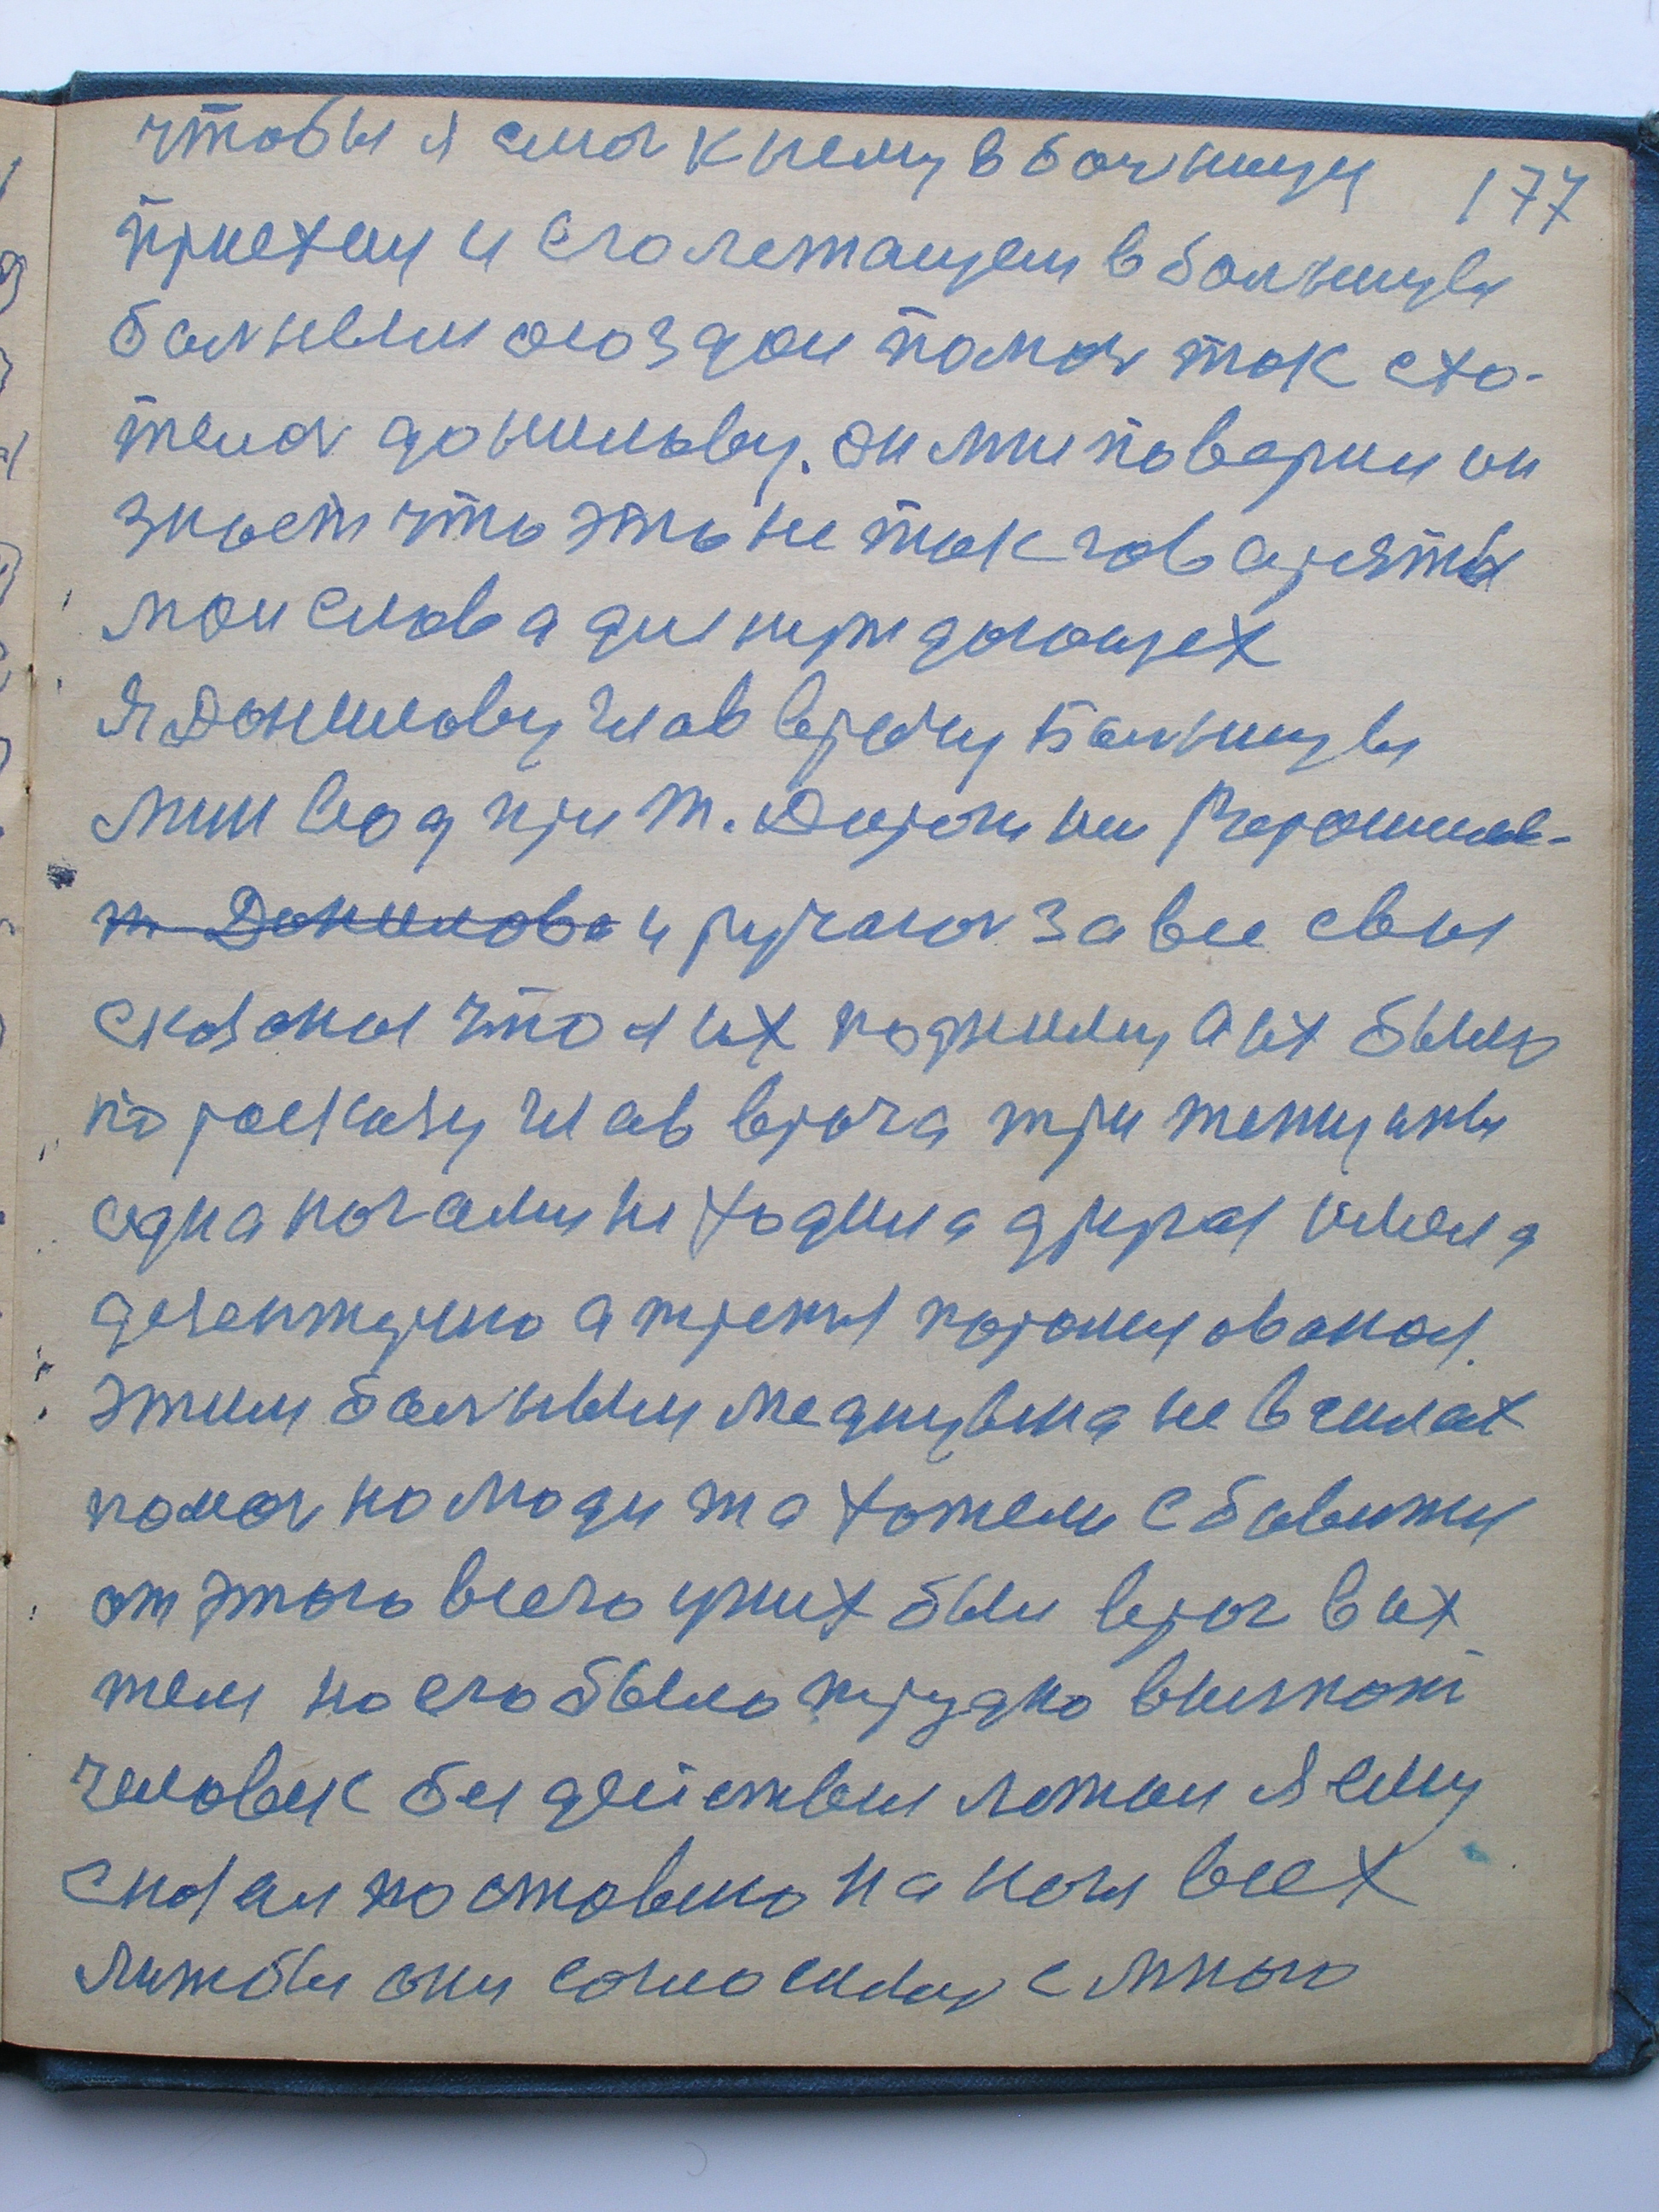 чтобы я смог к нему в болницу 177
приехал и его лежащем в больнице
больнеми
помоч так схо-
телос Данилову. Он мне поверил он
знает что это не так говарятя
мои слова для нуждающех
Я Данилову глав врачу Больнице
Мин вод при т.
т Данилова и ручаюс за все свои
сказаное что я их подниму, а их было
по росказу глав врача три женщины
одна ногами не ходила другая имела
дезентерию а третя поролизованая.
этим больным медицына не в силах
помоч но люди жа хотели сбавится
от этого всего у них был врач в их
теле но его было трудно внеи понят
человек без действия лежал я ему
сказал поставлю на ноги всех
лижбы они согласилис с мною